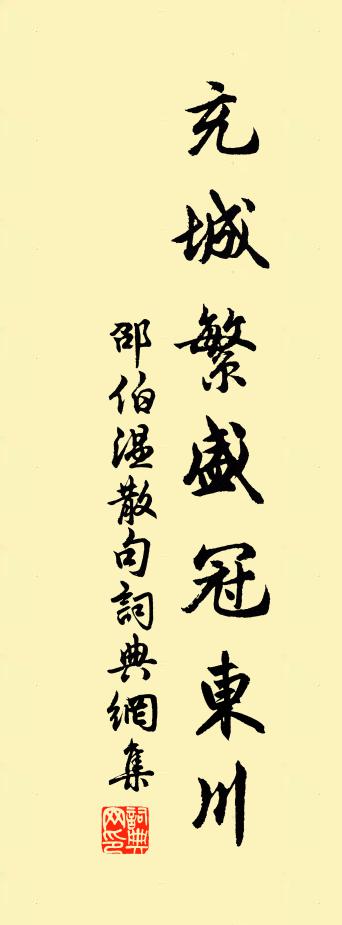 充城繁盛冠東川
邵伯溫散句詞典網集
詞典網印